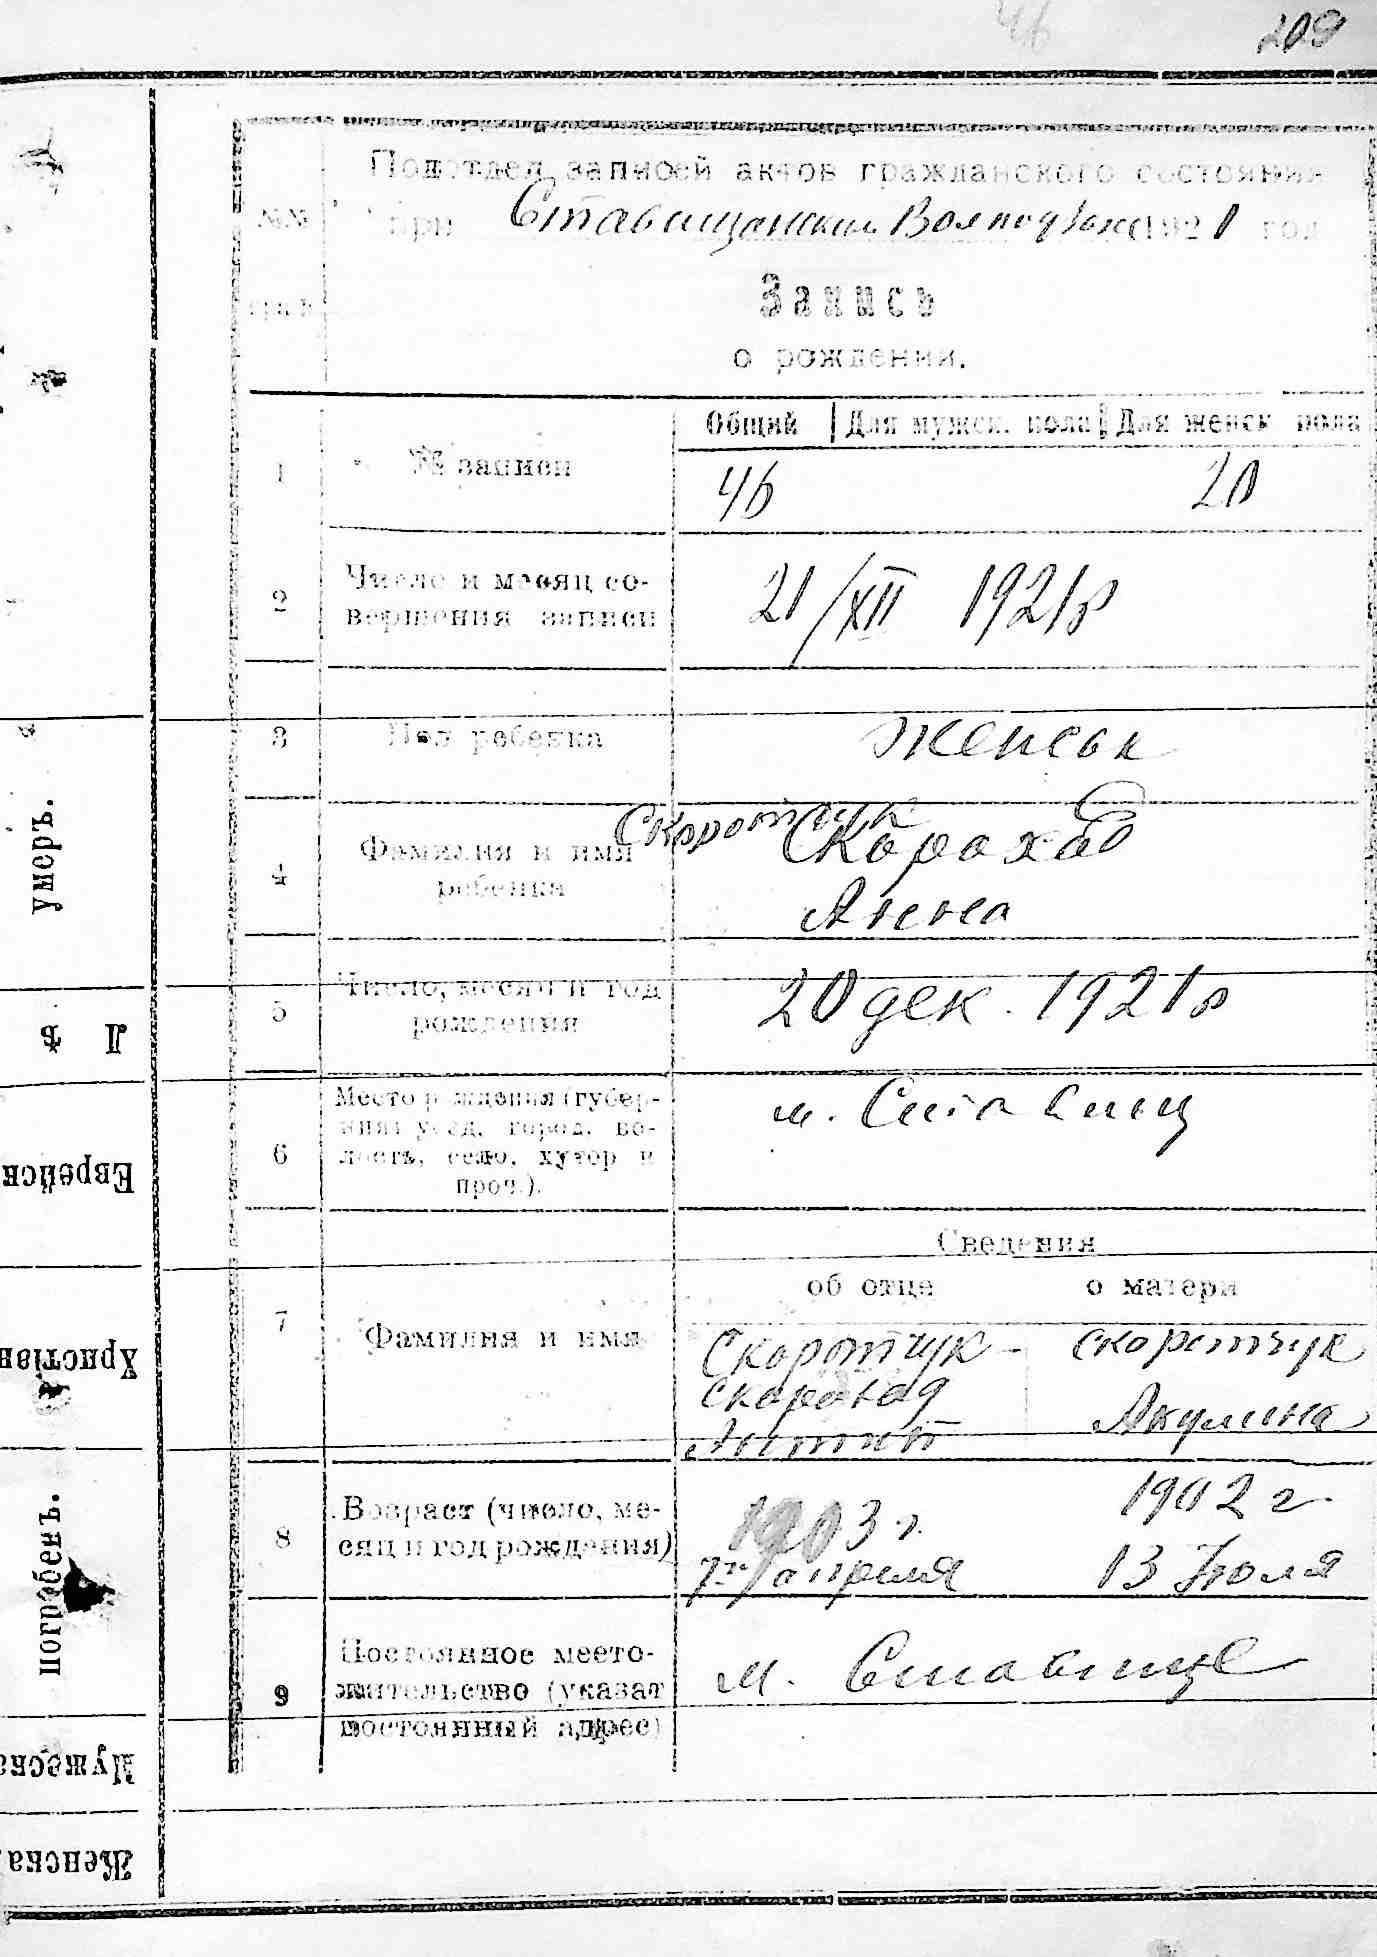 46
209
Подотдел записей актов гражданского состояния
№№ при Ставищанском 1921 год
Запись
о рождении.
Общий Для мужск. пола Для женск пола
1 № записи 46 20
2 Число и месяц со-
вершения записи 21/XII 1921 р
3 Пол ребенка женськ
Скоротчук
4 Фамилия и имя Скороход
ребенка Анна
5 Число, месяц и год
рождения 20 дек. 1921 р
6 Место рождения (губер-
ния, уезд, город, во-
лость, село, хутор и
проч.).
м. Ставищ
Сведения
об отце о матери
7 Фамилия и имя
Скоротчук - Скоротчук
Скороход
Акулина
8 Возраст (число, ме-
сяц и год рождения)
1903 г. 1902 г.
7го апреля 13 Июля
9 Постоянное место-
жительство (указат
постоянный адрес)
м. Ставище
умеръ.
Л ѣ
Еврейск
Христіан
погребенъ.
Мужеска
Женска